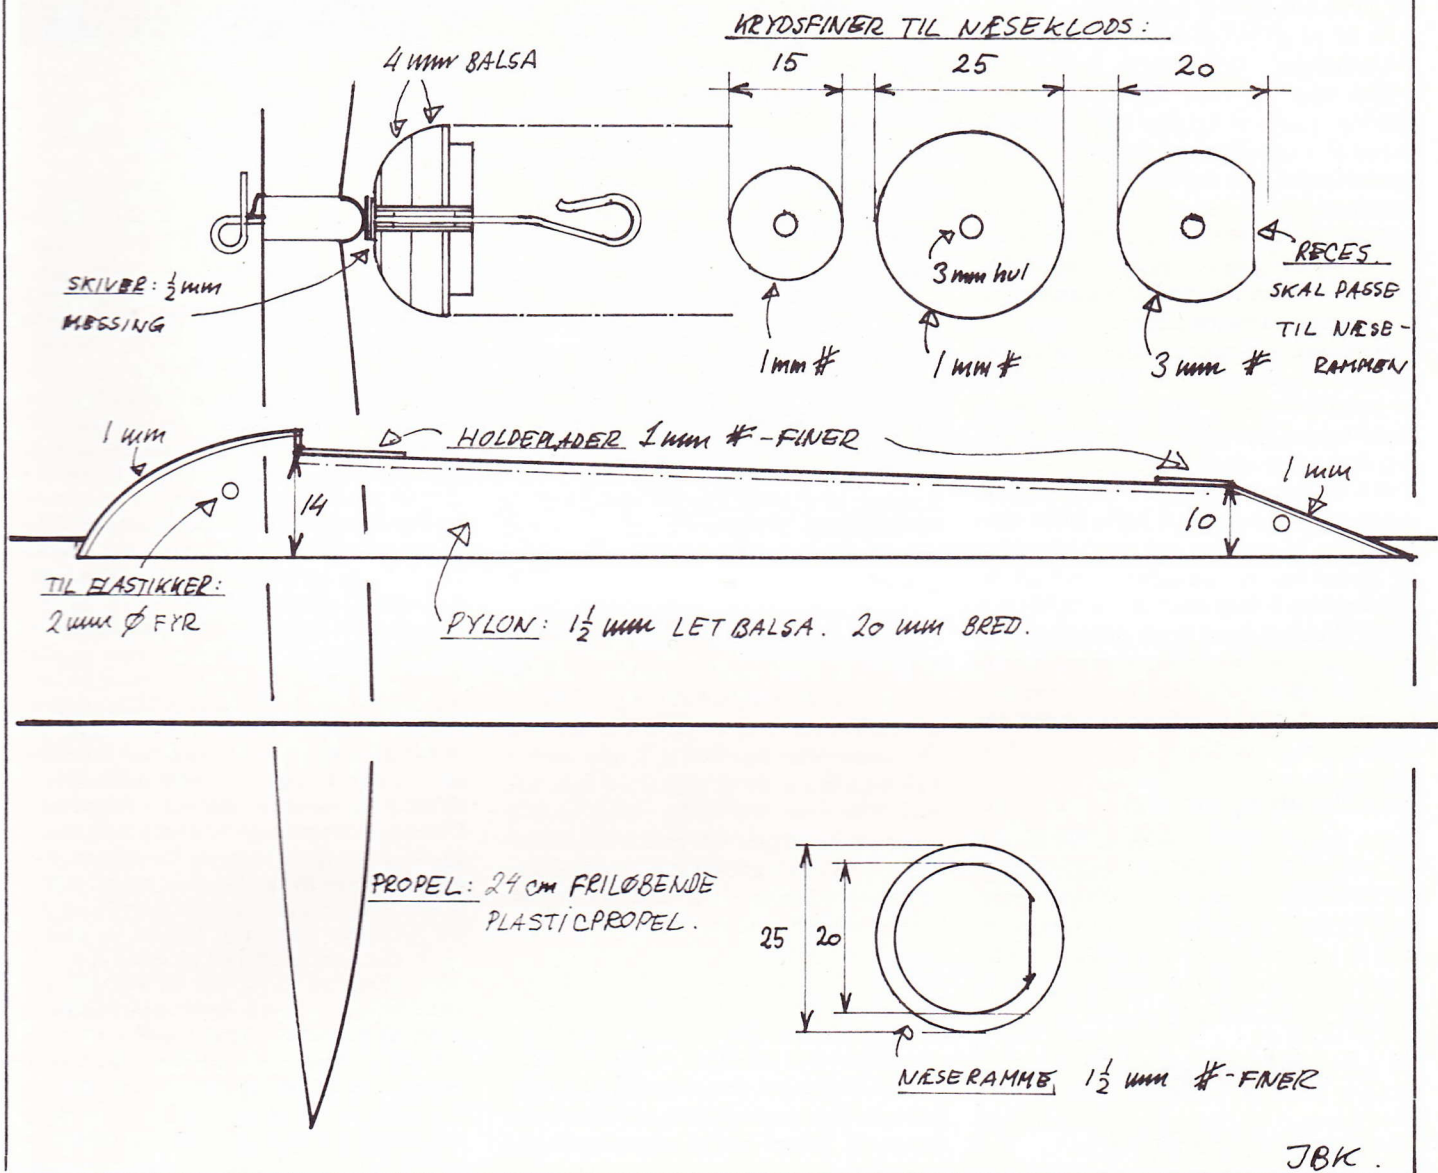 KRYDSFINER TIL NÆSEKLODS:
4 mm BALSA
15
25
20
3 mm hul
RECES.
SKAL PASSE
TIL NÆSE-
RAMMEN
SKIVER: ½ mm
MESSING
1 mm #
1 mm #
3 mm #
1 mm
HOLDEPLADER 1 mm #-FINER
1 mm
14
10
TIL ELASTIKKER:
2 mm Ø FYR
PYLON: 1½ mm LET BALSA. 20 mm BRED.
PROPEL: 24 cm FRILØBENDE
PLASTICPROPEL.
25
20
NÆSERAMME, 1½ mm #-FINER
JBK.